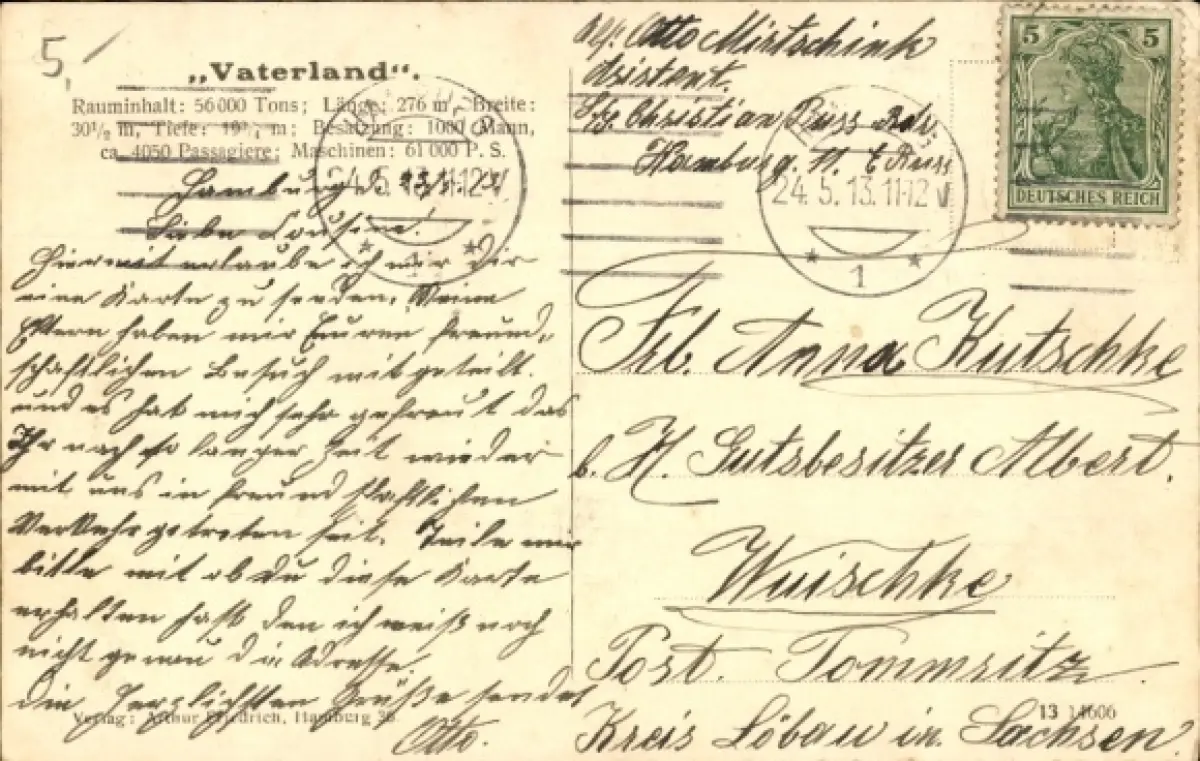 5,
„Vaterland“.
Rauminhalt: 56000 Tons; Länge: 276 m, Breite:
30½ m, Tiefe: 19¾ m; Besatzung: 1000 Mann,
ca. 4050 Passagiere; Maschinen: 61000 P. S.
Hamburg d.
Liebe Cousine.
Hiermit erlaube ich mir Dir
eine Karte zu senden. Meine
Eltern haben mir Euren freund-
schaftlichen Besuch mitgeteilt.
und es hat mich sehr gefreut das
Ihr nach so langer Zeit wieder
mit uns in freundschaftlichen
Verkehr getreten seit. Teile mir
bitte mit ob Du diese Karte
erhalten hast den ich weiß noch
nicht genau die Adresse.
Die herzlichsten Grüße sendet
Otto.
Verlag: Arthur Friedrich, Hamburg
24.5.13.11-12V
Abs. Otto Mirtschink
Asistent.
Christian Russ
Hamburg.
24.5.13.11-12V
1
5 5
DEUTSCHES REICH
Frl. Anna Kutschke
b. H. Gutsbesitzer Albert.
Wuischke
Post. Pommritz.
Kreis Löbau in Sachsen.
13 14606